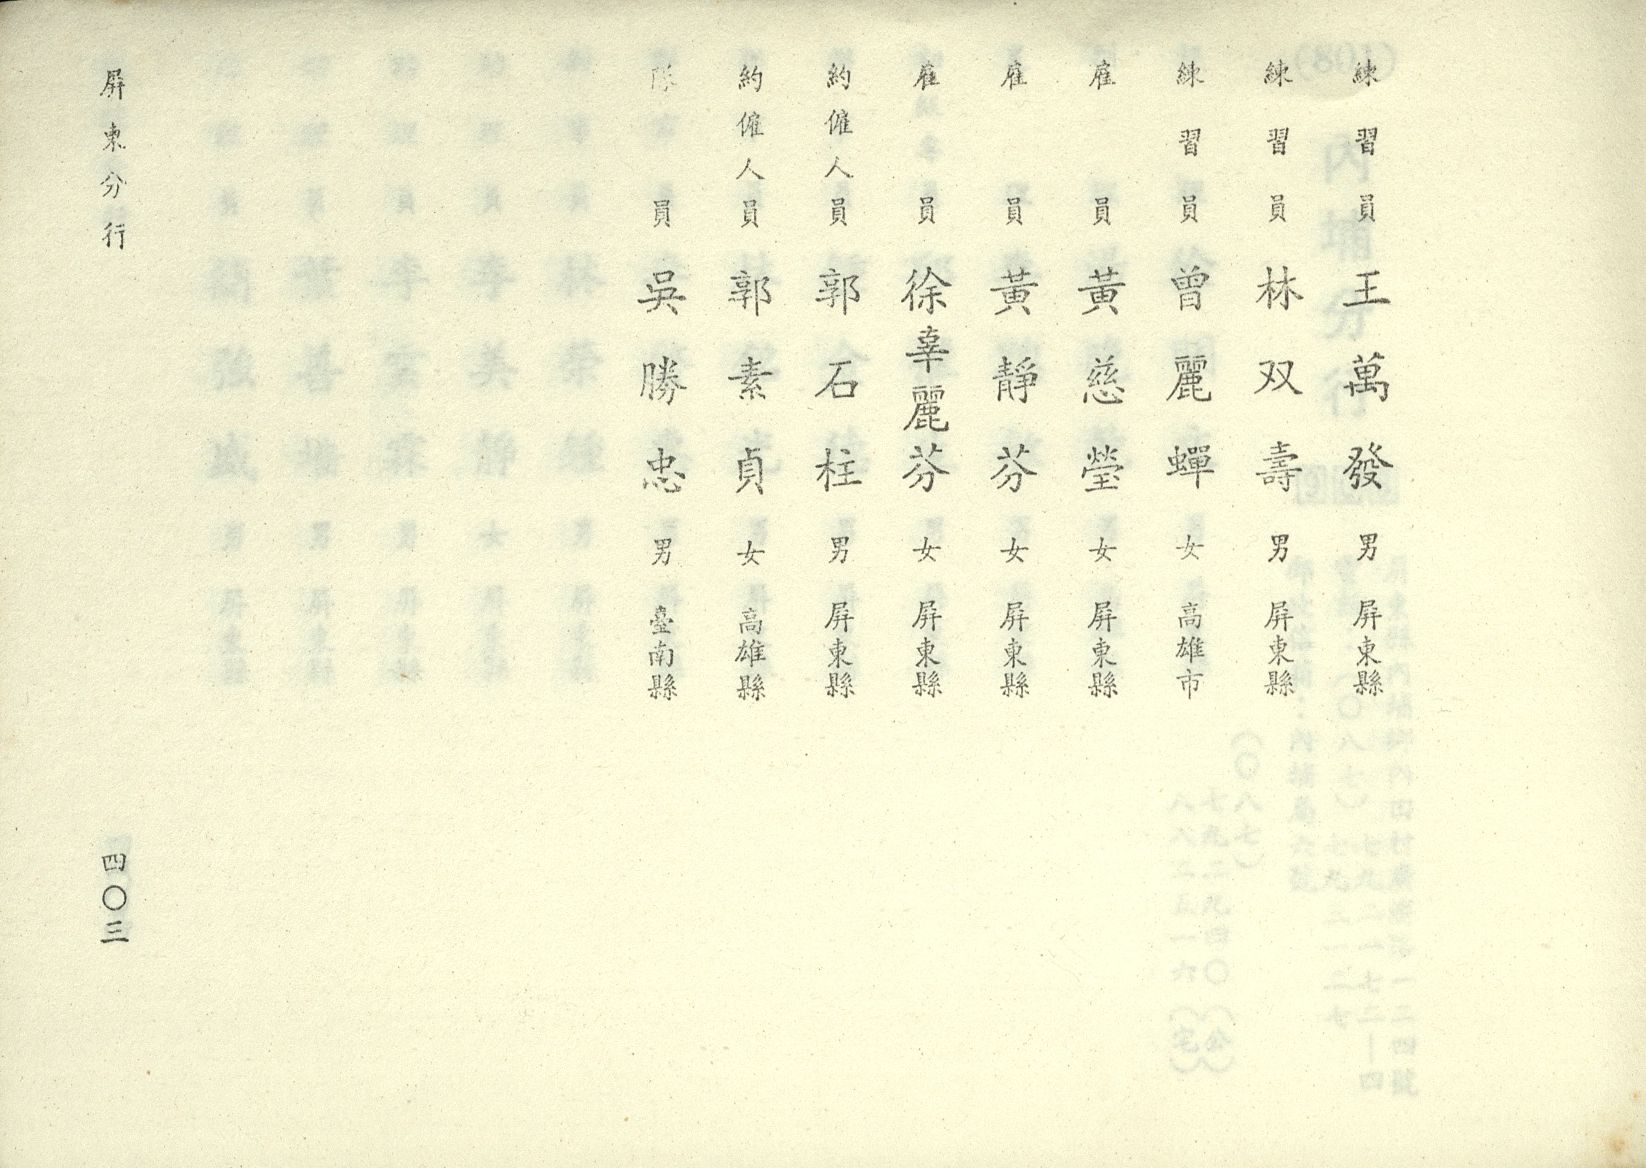 練習員 王萬發 男 屏東縣
練習員 林双壽 男 屏東縣
練習員 曾麗蟬 女 高雄市
雇員 黃慈瑩 女 屏東縣
雇員 黃靜芬 女 屏東縣
雇員 徐辜麗芬 女 屏東縣
約僱人員 郭石柱 男 屏東縣
約僱人員 郭素貞 女 高雄縣
隊員 吳勝忠 男 臺南縣
屏東分行
四〇三